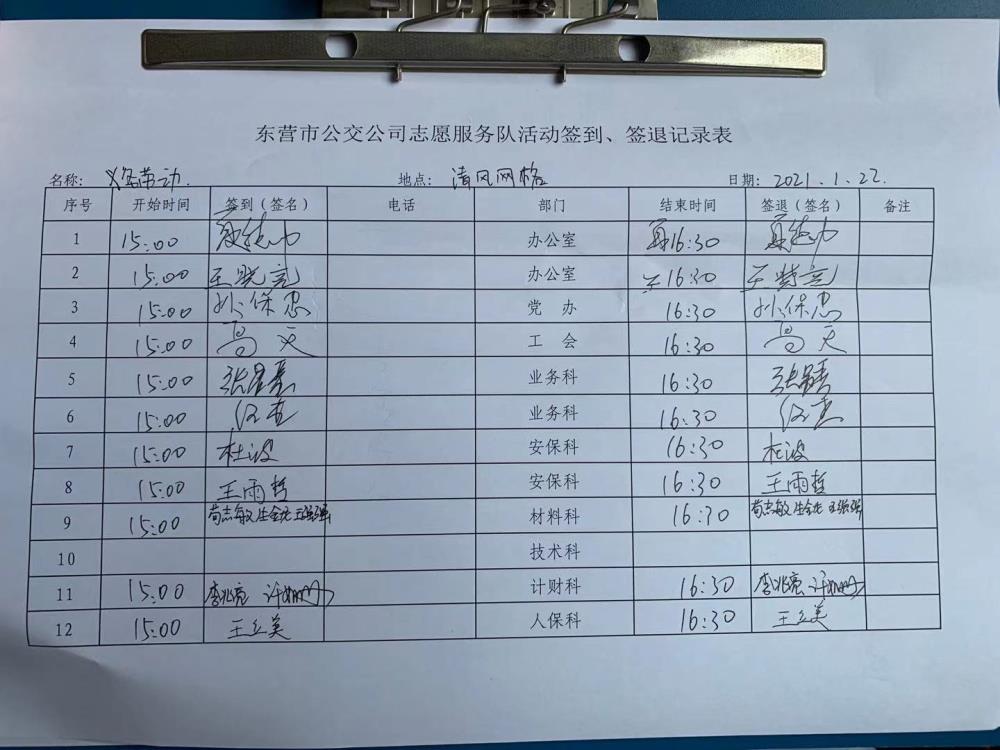 东营市公交公司志愿服务队活动签到、签退记录表
名称: 义务劳动. 地点: 清风网格 日期: 2021.1.22.
序号 开始时间 签到（签名） 电话 部门 结束时间 签退（签名） 备注
1 15:00 办公室 16:30
2 15:00 王晓亮 办公室 16:30 王晓亮
3 15:00 孙保忠 党 办 16:30 孙保忠
4 15:00 高天 工 会 16:30 高天
5 15:00 业务科 16:30
6 15:00 业务科 16:30
7 15:00 杜波 安保科 16:30 杜波
8 15:00 王雨哲 安保科 16:30 王雨哲
9 15:00 苟志敏 材料科 16:30 苟志敏
10 技术科
11 15:00 李兆亮 计财科 16:30 李兆亮
12 15:00 王立美 人保科 16:30 王立美